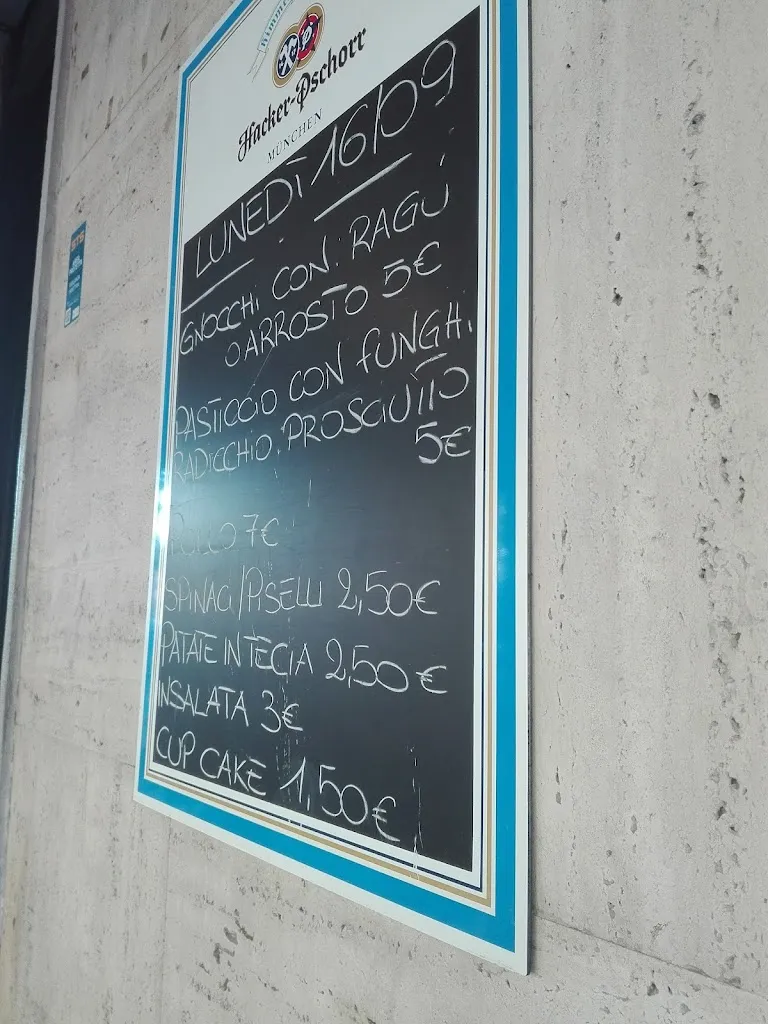 Hacker-Pschorr
MÜNCHEN
LUNEDÌ 16/09
GNOCCHI CON RAGÙ
O ARROSTO 5€
PASTICCIO CON FUNGHI
RADICCHIO PROSCIUTTO
5€
7€
SPINACI/PISELLI 2,50€
PATATE IN TECIA 2,50€
INSALATA 3€
CUP CAKE 1,50€